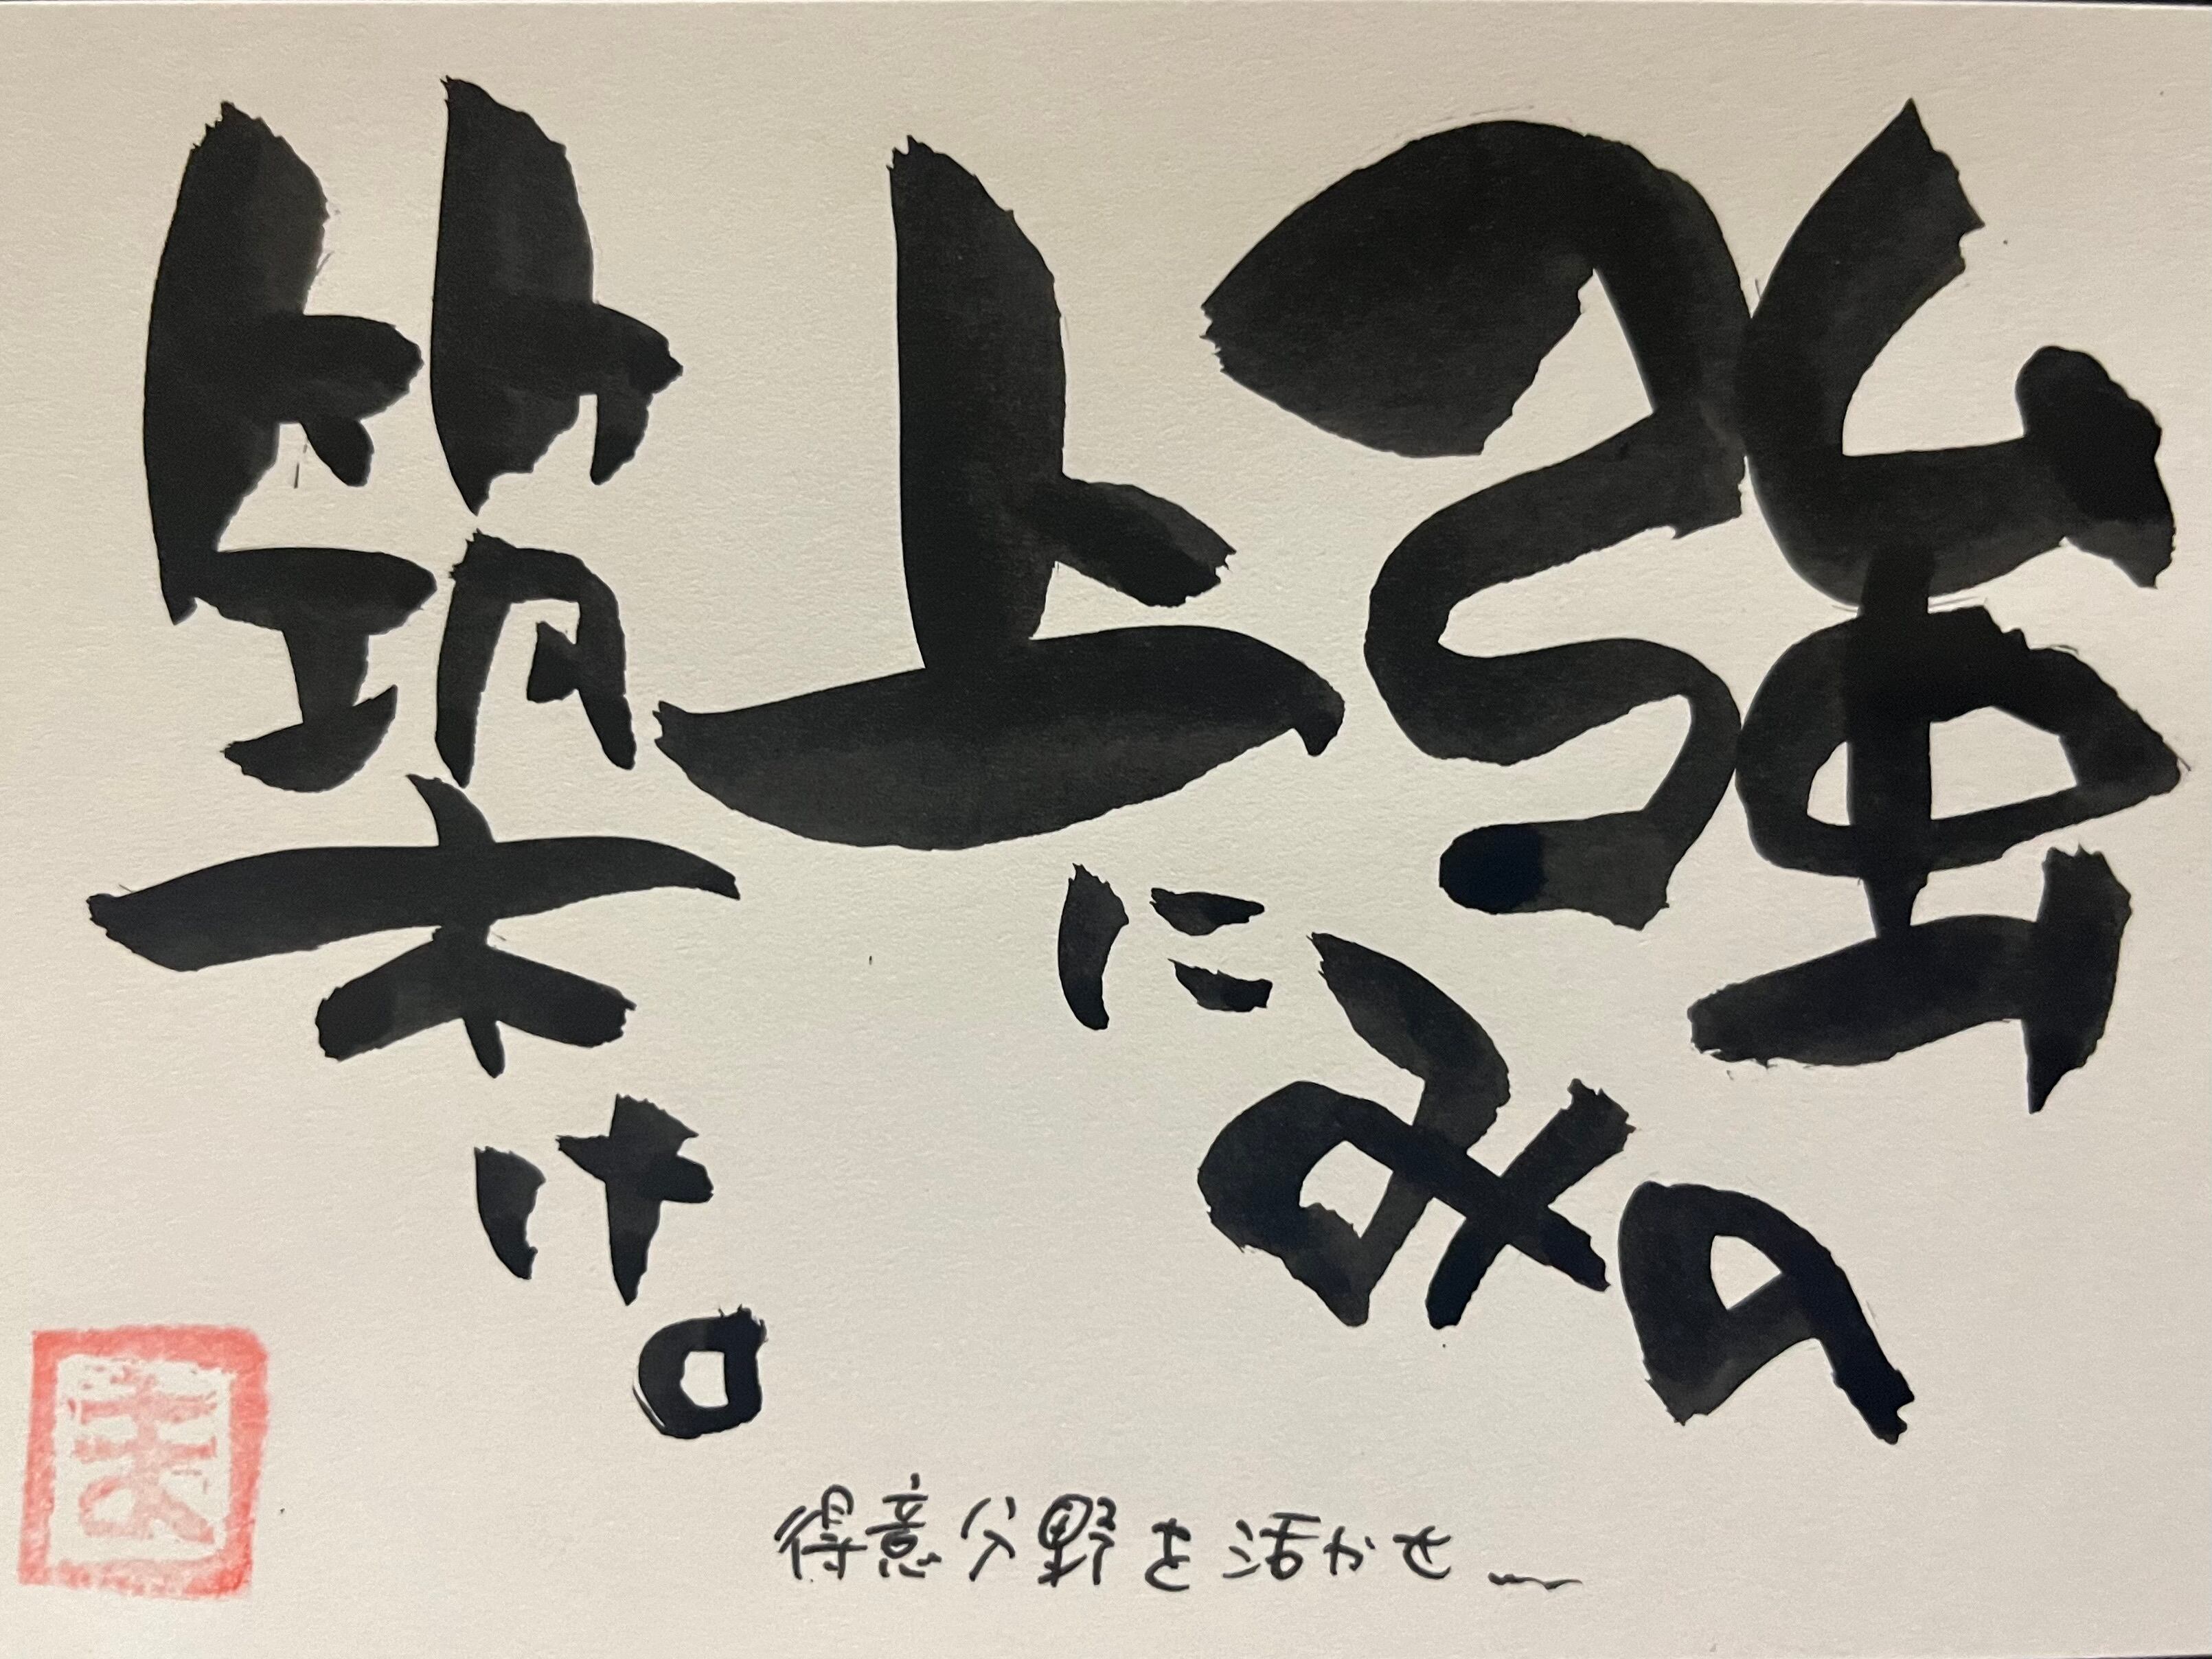 強みの
上に
築け。
得意分野を活かせ
ま